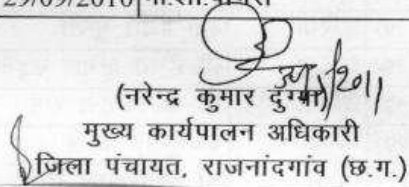 29/09/2016
(नरेन्द्र कुमार दुग्गा)
मुख्य कार्यपालन अधिकारी
जिला पंचायत, राजनांदगांव (छ.ग.)